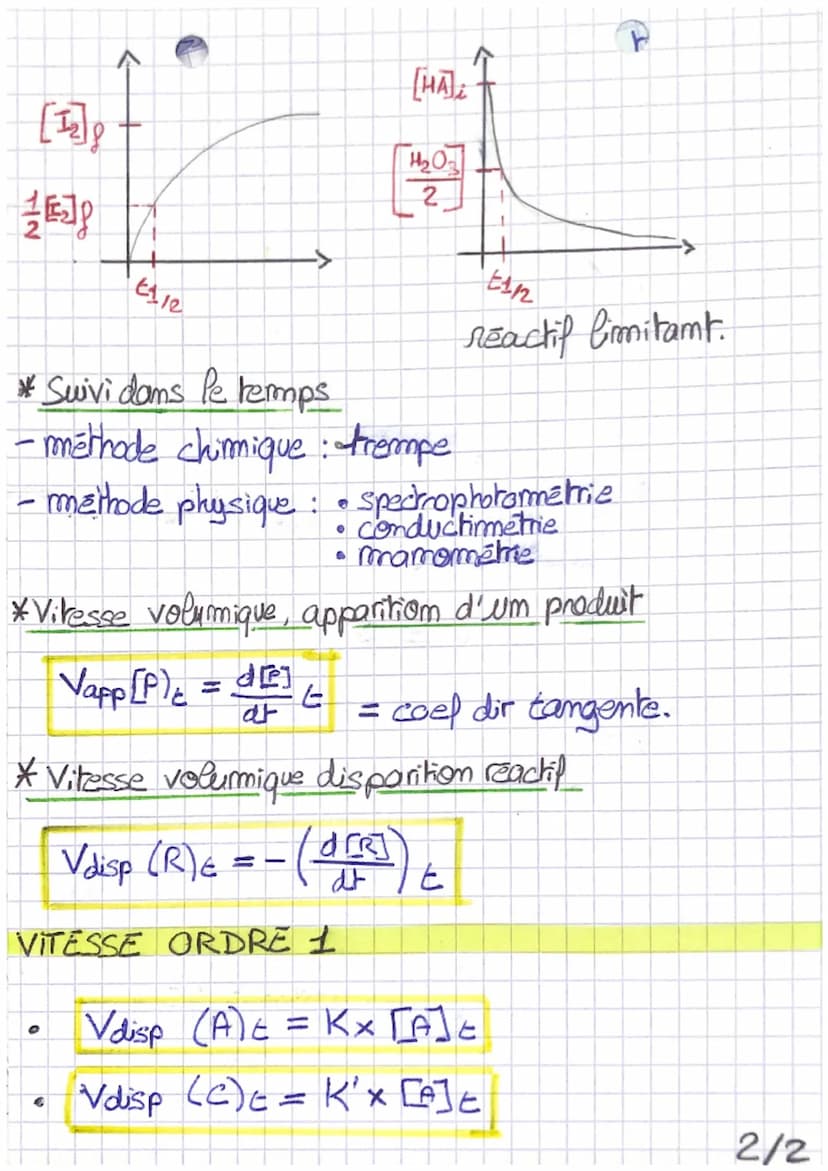 P
r
[I₂]f
½[I₂]f
t1/2
[HA]i
[H₂O₃/2]
t1/2
réactif limitant.
* Suivi dans le temps
- méthode chimique : trempe
- méthode physique : • spectrophotométrie
• conductimétrie
• manométrie
* Vitesse volumique, apparition d'um produit
Vapp[P]t = d[P]/dt t = coef dir tangente.
* Vitesse volumique disparition réactif
Vdisp (R)t = - (d[R]/dt) t
VITESSE ORDRE 1
• Vdisp (A)t = K x [A]t
• Vdisp (C)t = K' x [A]t
2/2